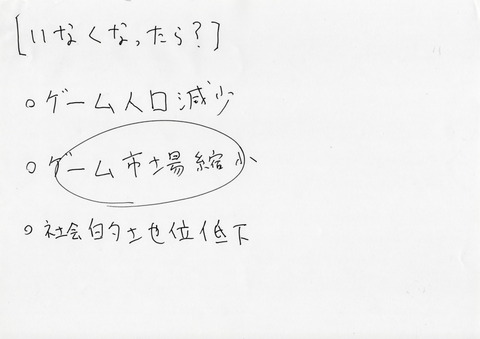 [いなくなったら？]
○ゲーム人口減少
○ゲーム市場縮小
○社会的地位低下